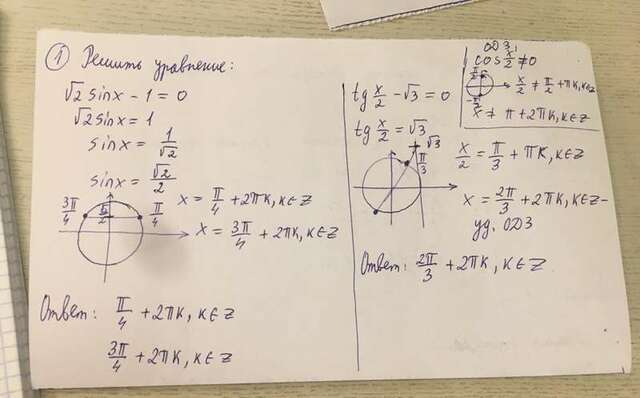 ① Решить уравнение:
√2 sinx - 1 = 0
√2 sinx = 1
sinx = 1/√2
sinx = √2/2
3π/4 √2/2 π/4
x = π/4 + 2πk, k∈Z
x = 3π/4 + 2πk, k∈Z
Ответ: π/4 + 2πk, k∈Z
3π/4 + 2πk, k∈Z
tg x/2 - √3 = 0
tg x/2 = √3
√3
π/3
ОДЗ:
cos x/2 ≠ 0
π/2
-π/2
x/2 ≠ π/2 + πk, k∈Z
x ≠ π + 2πk, k∈Z
x/2 = π/3 + πk, k∈Z
x = 2π/3 + 2πk, k∈Z -
уд. ОДЗ
Ответ: 2π/3 + 2πk, k∈Z